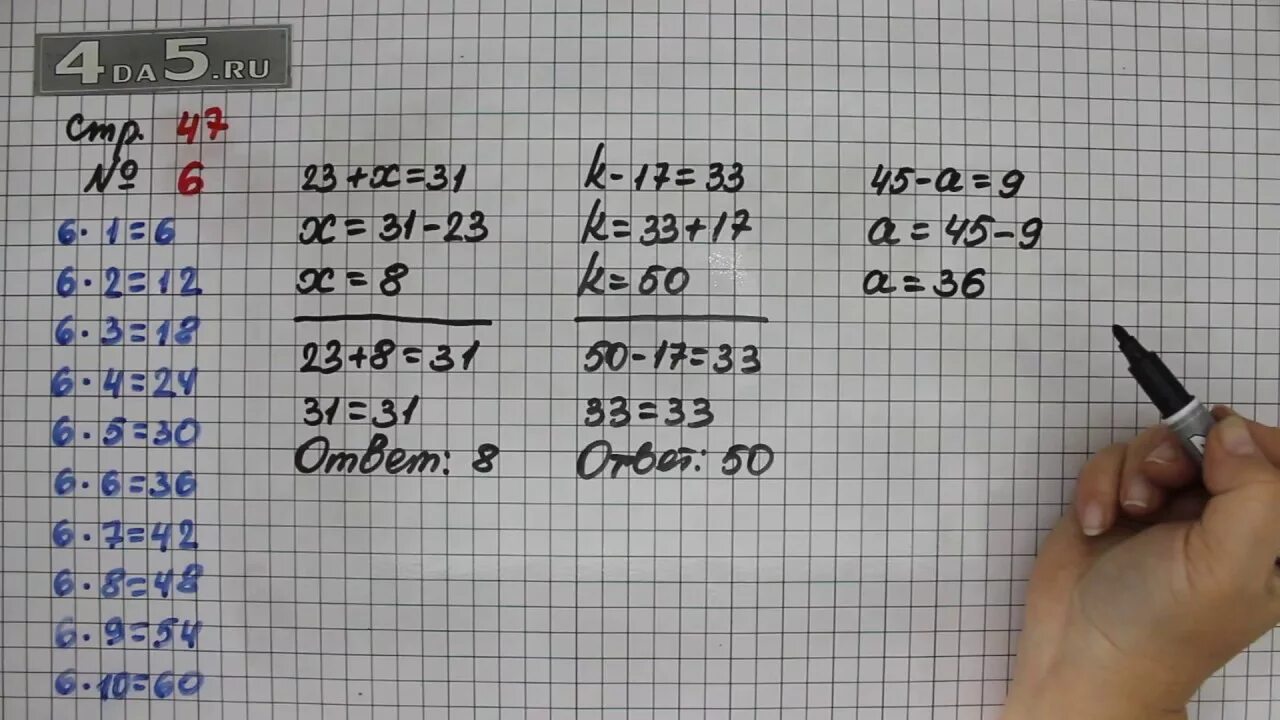 4DA5.RU
Стр. 47
№ 6
6·1=6
6·2=12
6·3=18
6·4=24
6·5=30
6·6=36
6·7=42
6·8=48
6·9=54
6·10=60
23+x=31
x=31-23
x=8
23+8=31
31=31
Ответ: 8
k-17=33
k=33+17
k=50
50-17=33
33=33
Ответ: 50
45-a=9
a=45-9
a=36